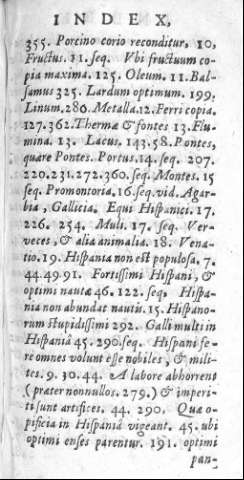 INDEX,
355. Porcino corio reconditur, 10,
Fructus. 11. seq. Vbi fructuum co-
pia maxima. 125. Oleum. 11. Bal-
samus 325. Lardum optimum. 199.
Linum. 286. Metalla. 12. Ferri copia.
127. 362. Thermæ & fontes 13. Flu-
mina. 13. Lacus. 143. 58. Pontes,
quare Pontes. Portus. 14. seq. 207.
220. 231. 272. 360. seq. Montes. 15
seq. Promontoria. 16. seq. vid. Agar-
bia, Gallicia. Equi Hispanici. 17.
226. 254. Muli. 17. seq. Ver-
veces, & alia animalia. 18. Vena-
tio. 19. Hispania non est populosa. 7.
44. 49. 91. Fortissimi Hispani, &
optimi nautæ 46. 122. seq. Hispa-
nia non abundat nautis. 15. Hispano-
rum stupidissimi 292. Galli multi in
Hispaniâ 45. 290. seq. Hispani fe-
re omnes volunt esse nobiles, & mili-
tes. 9. 30. 44. A labore abhorrent
(præter nonnullos. 279.) & imperi-
ti sunt artifices. 44. 290. Qua o-
pificia in Hispaniâ vigeant. 45. ubi
optimi enses parentur. 191. optimi
pan-